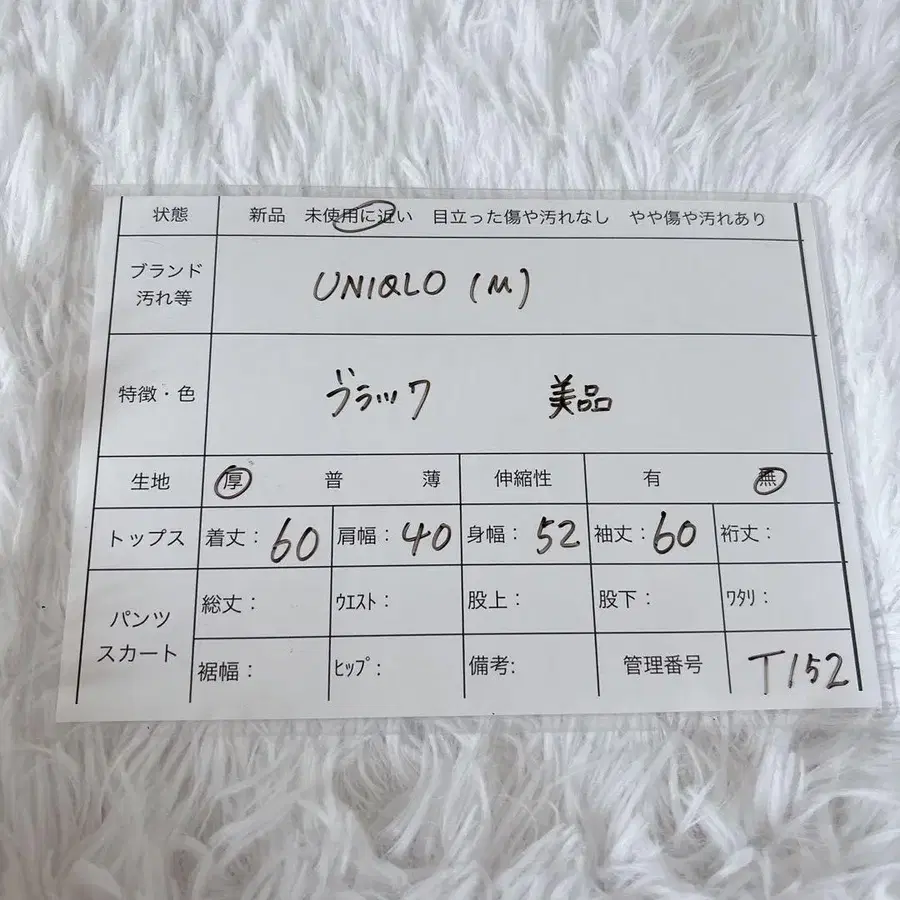 状態 新品 未使用に近い 目立った傷や汚れなし やや傷や汚れあり
ブランド
汚れ等 UNIQLO (M)
特徴・色 ブラック 美品
生地 厚 普 薄 伸縮性 有 無
トップス 着丈：60 肩幅：40 身幅：52 袖丈：60 裄丈：
パンツ
スカート
総丈： ｳｴｽﾄ： 股上： 股下： ﾜﾀﾘ：
裾幅： ﾋｯﾌﾟ： 備考: 管理番号 T152